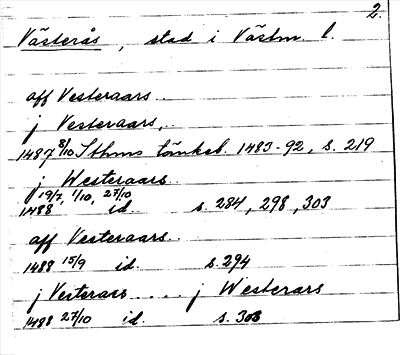 2.
Västerås, stad i Västm l.
aff Vesteraars..
j Vesteraars,..
1487 8/10 Sthms tänkeb. 1483-92, s. 219
j Westeraars..
1488 19/7, 1/10, 27/10 id. s. 284, 298, 303
aff Vesteraars..
1488 15/9 id. s. 294
j Vesterars .... j Westerars
1488 27/10 id. s. 303